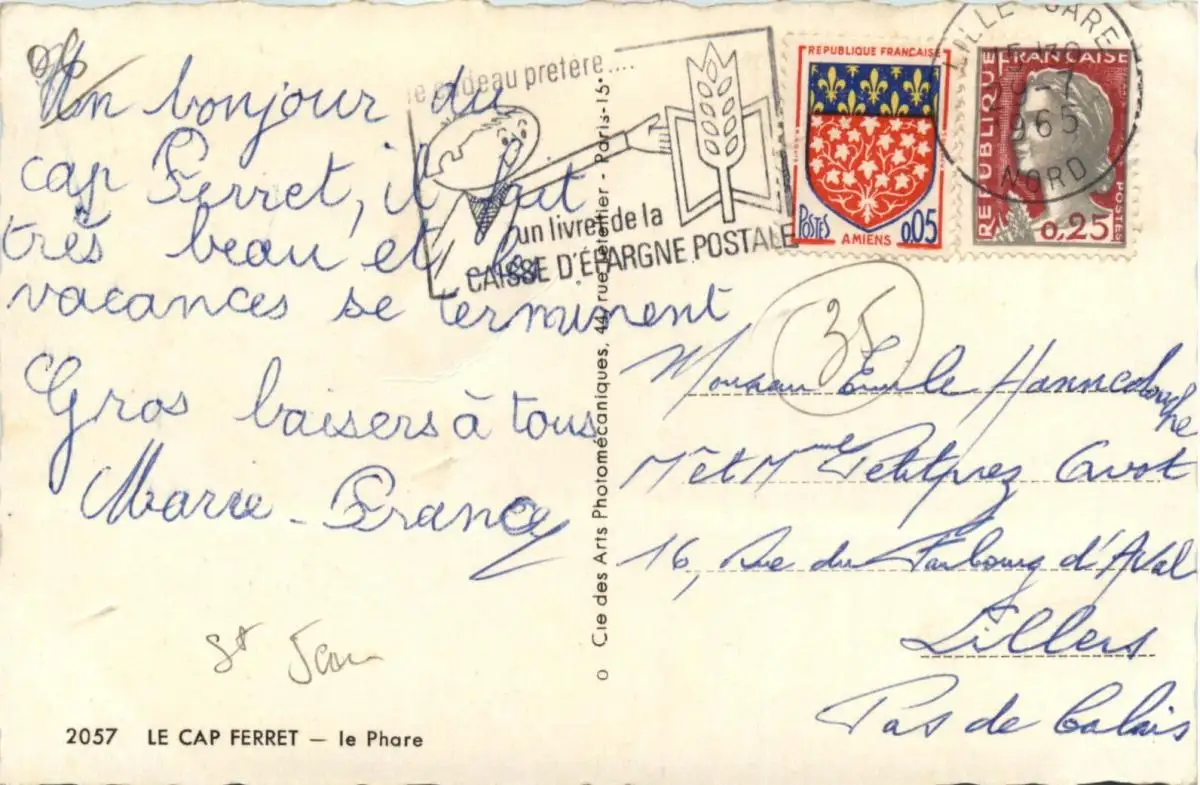 Un bonjour du
cap Ferret, il fait
très beau et les
vacances se terminent
Gros baisers à tous
Marie-France
St Jean
2057 LE CAP FERRET — le Phare
Cie des Arts Photomécaniques, 44, rue Letellier - Paris-15e
le cadeau préféré....
un livret de la
CAISSE D'ÉPARGNE POSTALE
REPUBLIQUE FRANÇAISE
POSTES AMIENS 0,05
REPUBLIQUE FRANÇAISE
POSTES
0,25
LILLE GARE
1965
NORD
35
Monsieur Emile
Mr et Mme Petitprez
16, Rue du Faubourg d'Aval
Lillers
Pas de Calais